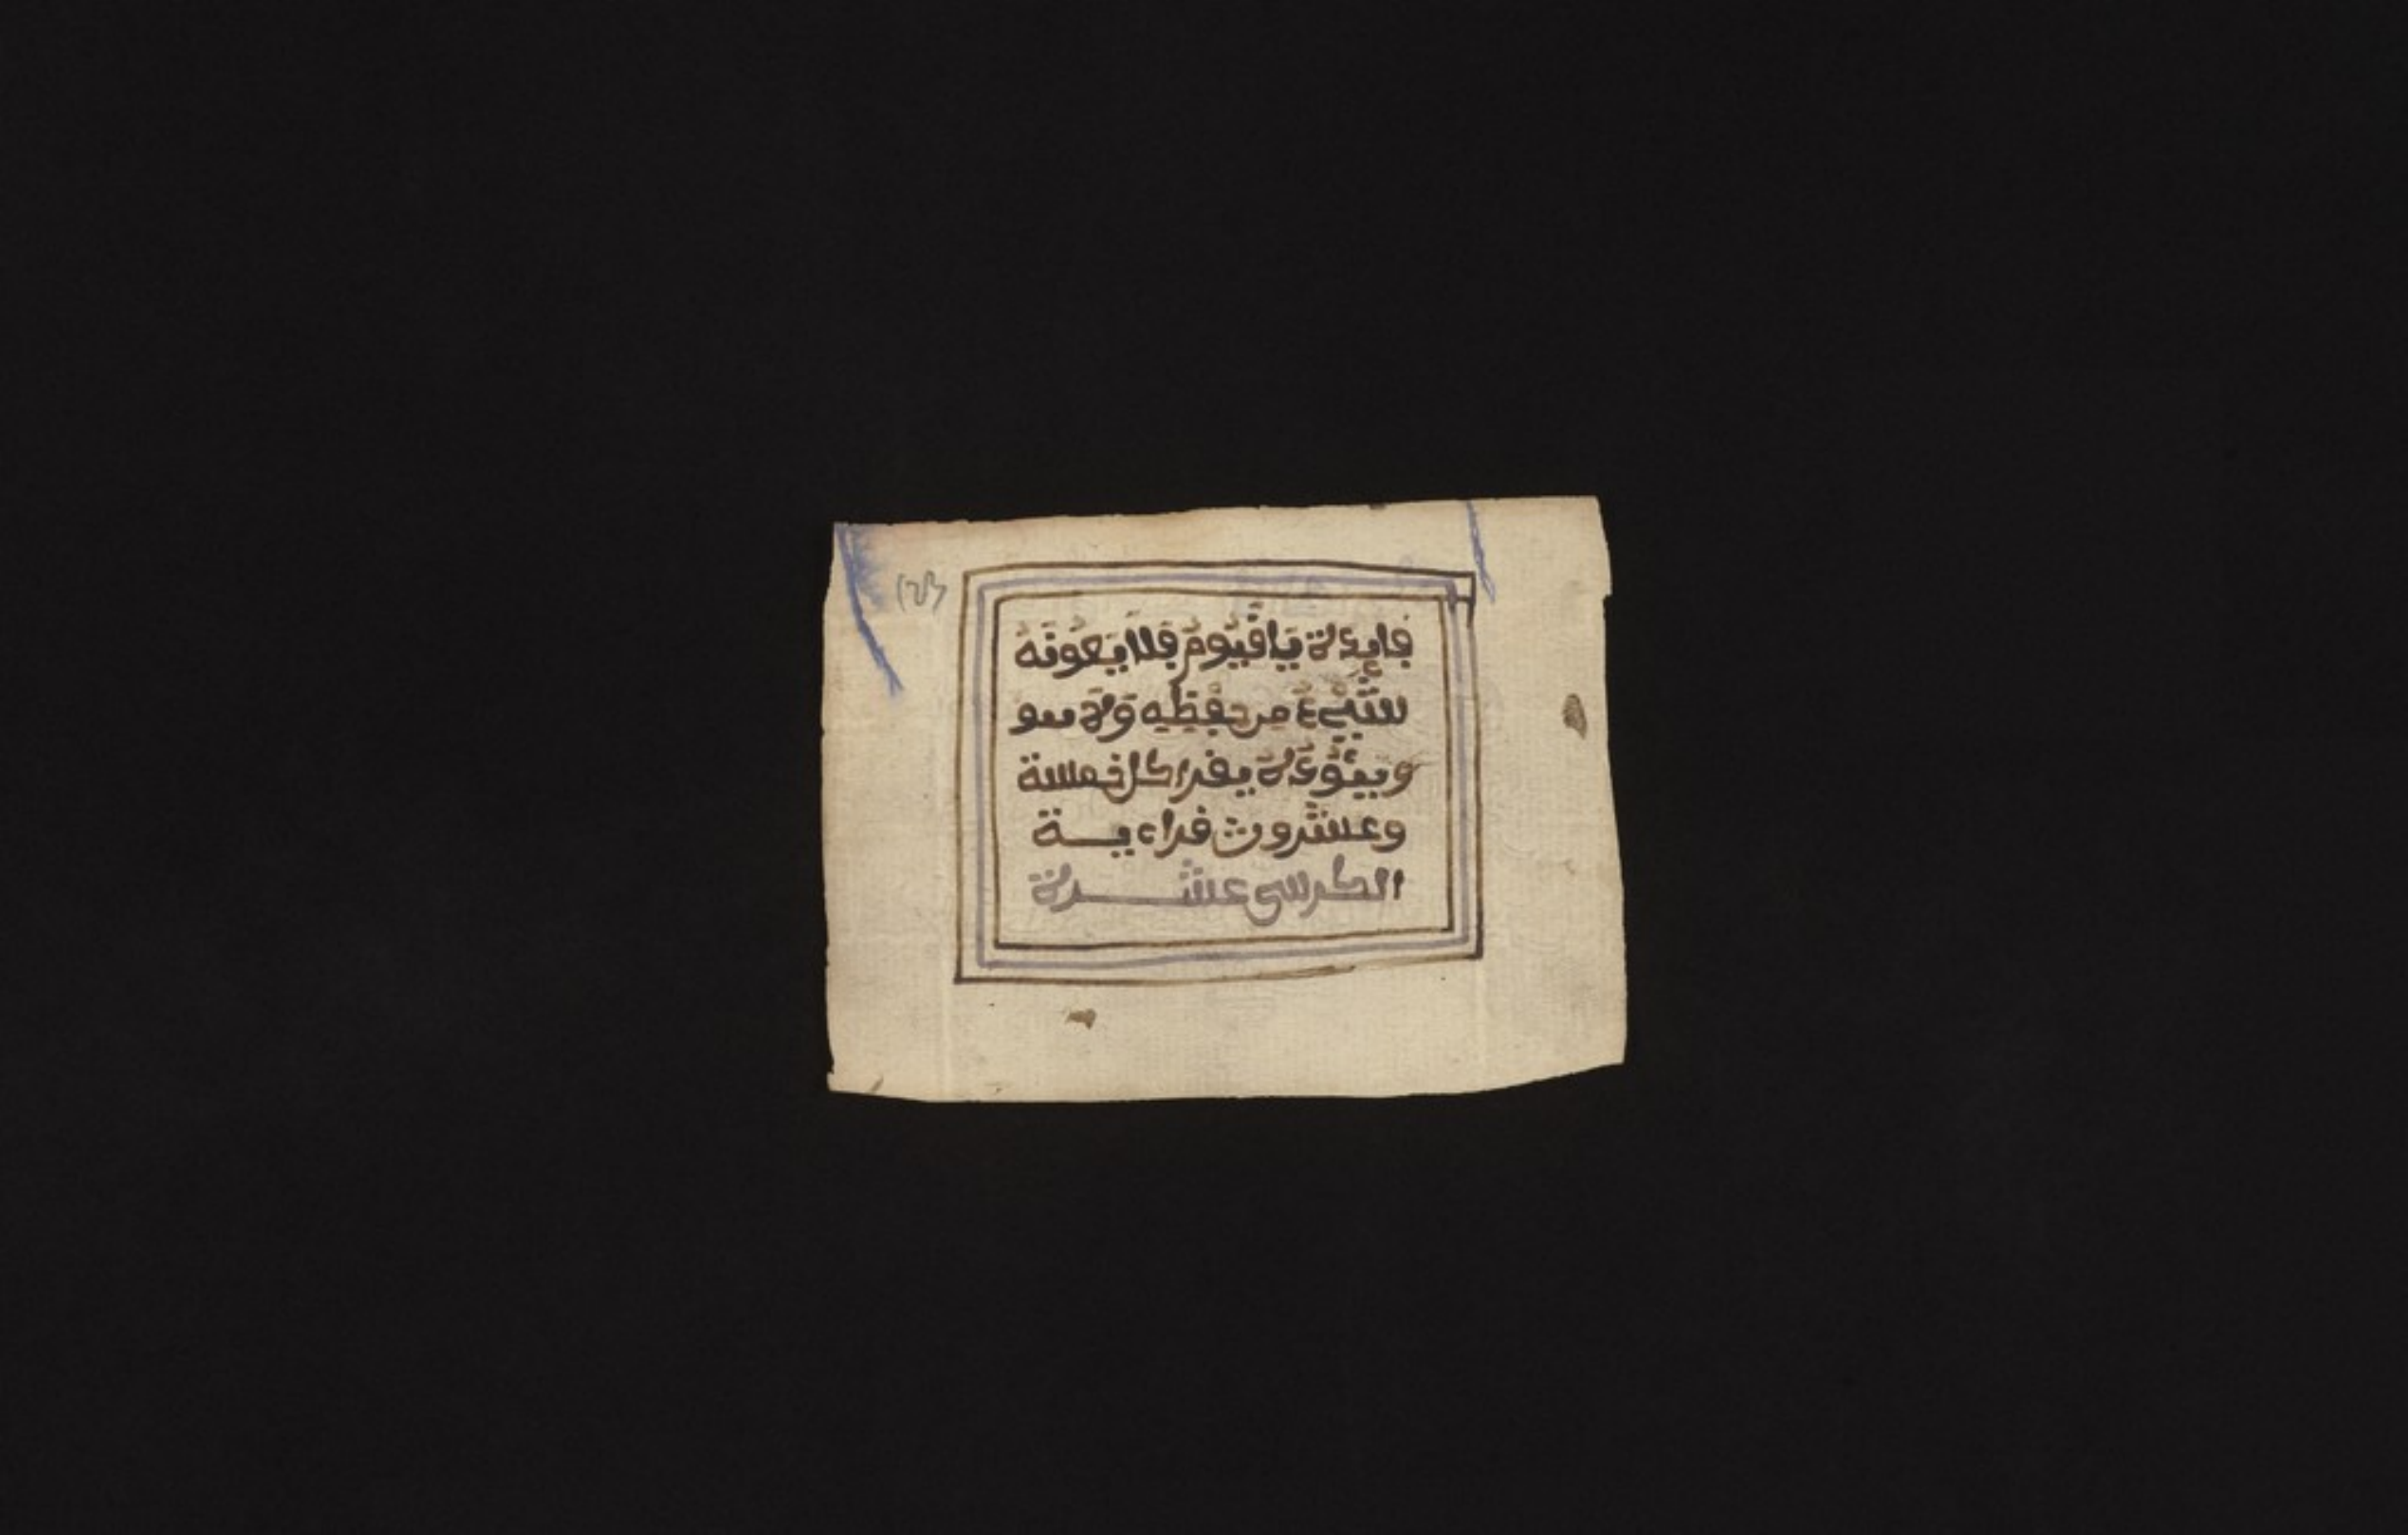 فايدة يَا قَيُّومُ فَلَا يَفُوتَهُ
شَيْءٌ مِن حِفْظِهِ وَلَا
يقرا كل خمسة
وعشرون قراءية
الكرسي عشرة